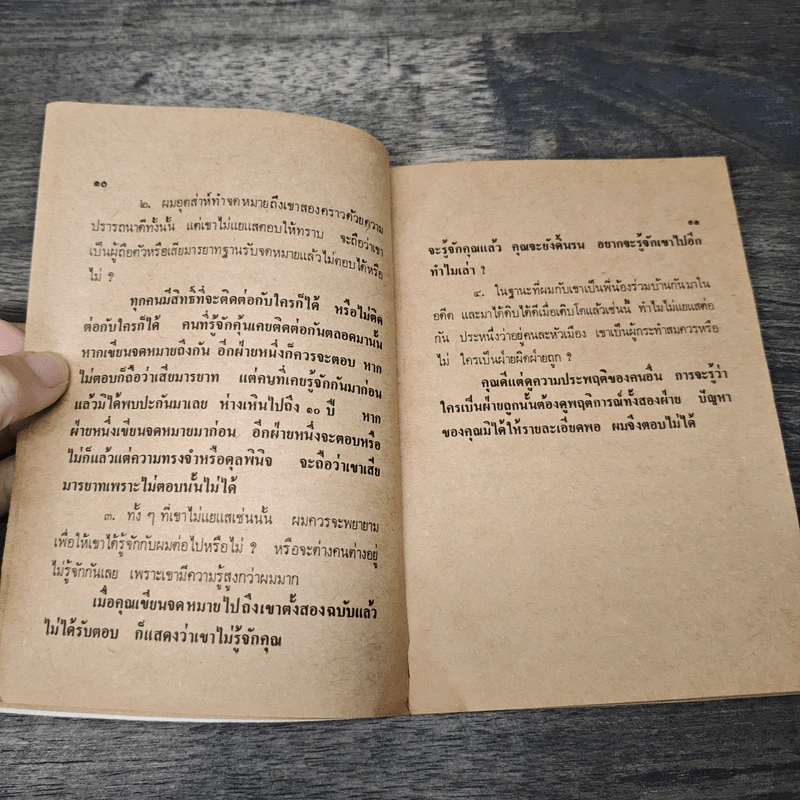 ๑๐
๒. ผมอุตส่าห์ทำจดหมายถึงเขาสองคราวด้วยความ
ปรารถนาดีทั้งนั้น แต่เขาไม่แยแสตอบให้ทราบ จะถือว่าเขา
เป็นผู้ถือตัวหรือเสียมารยาทฐานรับจดหมายแล้วไม่ตอบได้หรือ
ไม่ ?
ทุกคนมีสิทธิ์ที่จะติดต่อกับใครก็ได้ หรือไม่ติด
ต่อกับใครก็ได้ คนที่รู้จักคุ้นเคยติดต่อกันตลอดมานั้น
หากเขียนจดหมายถึงกัน อีกฝ่ายหนึ่งก็ควรจะตอบ หาก
ไม่ตอบก็ถือว่าเสียมารยาท แต่คนที่เคยรู้จักกันมาก่อน
แล้วมิได้พบปะกันมาเลย ห่างเหินไปถึง ๑๐ ปี หาก
ฝ่ายหนึ่งเขียนจดหมายมาก่อน อีกฝ่ายหนึ่งจะตอบหรือ
ไม่ก็แล้วแต่ความทรงจำหรือดุลพินิจ จะถือว่าเขาเสีย
มารยาทเพราะไม่ตอบนั้นไม่ได้
๓. ทั้ง ๆ ที่เขาไม่แยแสเช่นนั้น ผมควรจะพยายาม
เพื่อให้เขาได้รู้จักกับผมต่อไปหรือไม่ ? หรือจะต่างคนต่างอยู่
ไม่รู้จักกันเลย เพราะเขามีความรู้สูงกว่าผมมาก
เมื่อคุณเขียนจดหมายไปถึงเขาตั้งสองฉบับแล้ว
ไม่ได้รับตอบ ก็แสดงว่าเขาไม่รู้จักคุณ
๑๑
จะรู้จักคุณแล้ว คุณจะยังดิ้นรน อยากจะรู้จักเขาไปอีก
ทำไมเล่า ?
๔. ในฐานะที่ผมกับเขาเป็นพี่น้องร่วมบ้านกันมาใน
อดีต และมาได้ดิบได้ดีเมื่อเติบโตแล้วเช่นนี้ ทำไมไม่แยแสต่อ
กัน ประหนึ่งว่าอยู่คนละหัวเมือง เขาเป็นผู้กระทำสมควรหรือ
ไม่ ใครเป็นฝ่ายผิดฝ่ายถูก ?
คุณดีแต่ดูความประพฤติของคนอื่น การจะรู้ว่า
ใครเป็นฝ่ายถูกนั้นต้องดูพฤติการณ์ทั้งสองฝ่าย ปัญหา
ของคุณมิได้ให้รายละเอียดพอ ผมจึงตอบไม่ได้